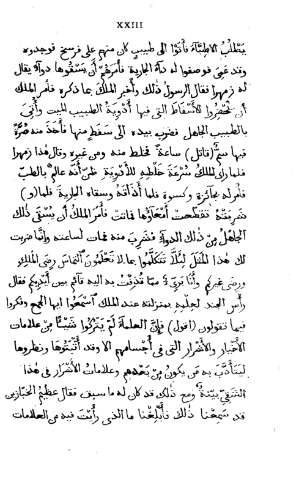 XXIII
يتطلب الاطباء فأتوا الى طبيب كان منهم على فرسخ فوجدوه
وقد عمى فوصفوا له داء الجارية فأمرهم أن يسقوها دواء يقال
له زمهرا فقال الرسول ذلك وأخبر الملك بما ذكره فأمر الملك
أن تحضروا الأسفاط التى فيها أدوية الطبيب الميت وأتى
بالطبيب الجاهل فضرب بيده الى سفط منها فأخذ منه صرة
فيها سم (قاتل) ساعة فخلط منه ومن غيره وقال هذا زمهرا
فلما رأى الملك سرعة خلطه للأدوية ظن أنه عالم بالطب
فأمر له بجائزة وكسوة فلما أذاقه وسقاه الجارية فلما(و)
شربته تقطعت أمعاؤها فماتت فأمر الملك أن يسقى ذلك
الجاهل من ذلك الدواء فشرب منه فمات لساعته وإنما ضربت
لك هذا المثل لئلا تتكلموا بما لا تعلمون التماس رضى الملك و
ورضى غيركم وأنا برىء مما قذفت به اليه قائم بين أيديكم فقال
رأس الجند لعلمه بمنزلته عند الملك اسمعوا ايها الجمع وفكروا
فيما تقولون (اقول) فإن العلماء لم يتركوا شيئا من علامات
الأخيار والأشرار التى فى أجسامهم الا وقد أثبتوها ونظروها
ليتأدب به من يكون من بعدهم وعلامات الأشرار فى هذا
الشقى بينة ومع ذلك قد كان له ما سبق فقال عظيم الخبازين
قد سمعنا ذلك فأبلغنا ما الذى رأيت فيه من العلامات